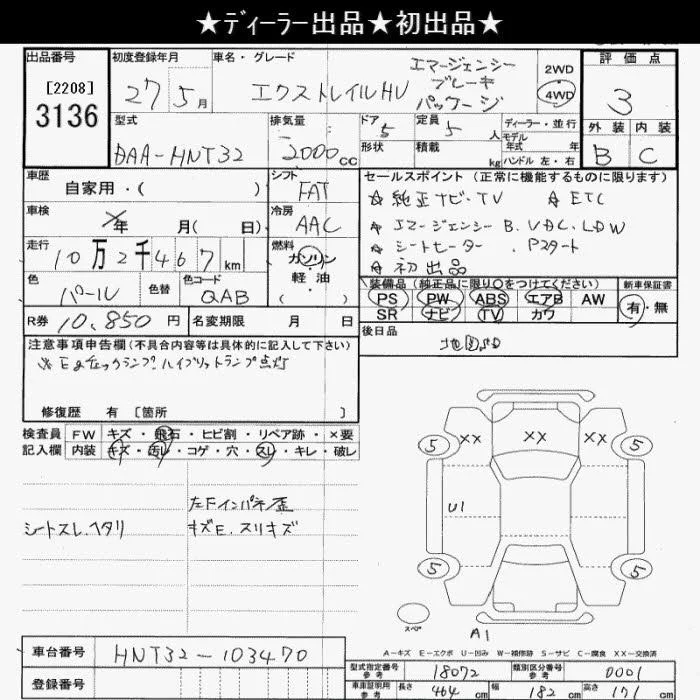 ★ディーラー出品★初出品★
出品番号
[2208]
3136
初度登録年月
27 5月
車名・グレード
エクストレイルHV
エマージェンシー
ブレーキ
パッケージ
2WD
4WD
評価点
3
外装 内装
B C
型式
DAA-HNT32
排気量
2000cc
ドア 5
形状
定員 5人
積載 kg
ディーラー・並行
モデル
年式 年
ハンドル 左・右
車歴
自家用・( )
シフト
FAT
車検
年 月( 日)
冷房
AAC
走行
10万2千467km
燃料
ガソリン
・
軽油
( )
色
パール
色替
色コード
QAB
R券 10,850円
名変期限 月 日
セールスポイント (正常に機能するものに限ります)
☆純正ナビ・TV ☆ETC
☆エマージェンシーB.VDC.LDW
☆シートヒーター .Pスタート
☆初出品
装備品(純正品に限り○をつけてください)
PS PW ABS エアB AW
SR ナビ TV カワ
新車保証書
有・無
後日品
注意事項申告欄(不具合内容等は具体的に記入して下さい)
※Egチェックランプ ハイブリットランプ点灯
修復歴 有 [箇所 ]
検査員
記入欄
FW キズ・飛石・ヒビ割・リペア跡・×要
内装 キズ・汚レ・コゲ・穴・スレ・キレ・破レ
左Fインパネ歪
シートスレ.ヘタリ キズE.スリキズ
5 XX XX XX 5
U1
5 5
スペア
A1
A-キズ E-エクボ U-凹み W-補修跡 S-サビ C-腐食 XX-交換済
車台番号 HNT32-103470
登録番号
型式指定番号
参考
18072
類別区分番号
参考
0001
車庫証明用
参考
長さ 464cm 幅 182cm 高さ 171cm